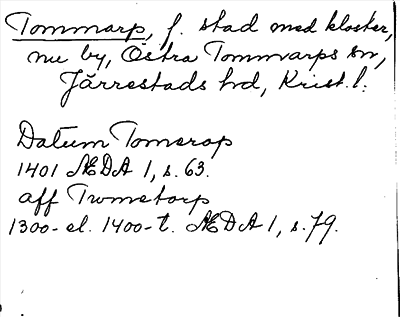 Tommarp, f. stad med kloster,
nu by, Östra Tommarps sn,
Järrestads hd, Krist. l.
Datum Tomerop
1401 ÆDA 1, s. 63.
aff Twmetorp
1300- el. 1400-t. ÆDA 1, s. 79.